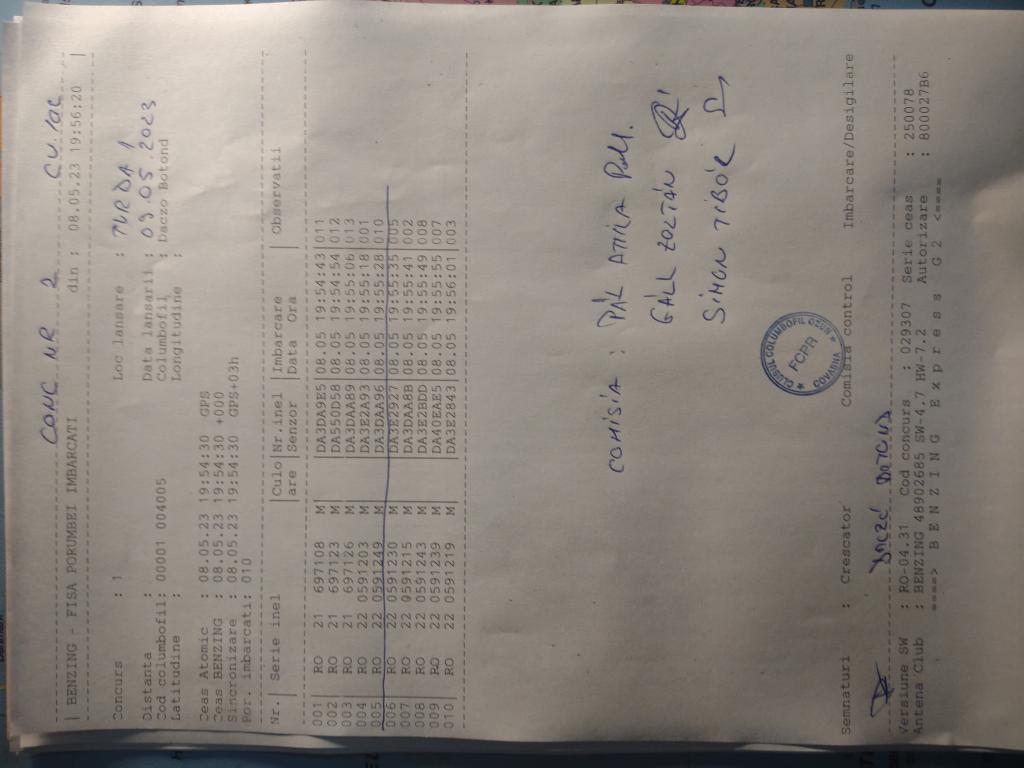 CONC NR 2 CU.10C
| BENZING - FISA PORUMBEI IMBARCATI din : 08.05.23 19:56:20 |
Concurs : 1 Loc lansare : TURDA 1
Distanta : Data lansarii : 09.05.2023
Cod columbofil: 00001 004005 Columbofil : Daczo Botond
Latitudine : Longitudine :
Ceas Atomic : 08.05.23 19:54:30 GPS
Ceas BENZING : 08.05.23 19:54:30 +000
Sincronizare : 08.05.23 19:54:30 GPS+03h
Por. imbarcati: 010
Nr.| Serie inel |Culo|Nr.inel |Imbarcare | Observatii
|are |Senzor |Data Ora |
001| RO 21 697108 M |DA3DA9E5|08.05 19:54:43|011
002| RO 21 697123 M |DA55DD58|08.05 19:54:54|012
003| RO 21 697126 M |DA3DAA89|08.05 19:55:06|013
004| RO 22 0591203 M |DA3E2A93|08.05 19:55:18|001
005| RO 22 0591249 M |DA3DAA96|08.05 19:55:28|010
006| RO 22 0591230 M |DA3E2927|08.05 19:55:35|005
007| RO 22 0591215 M |DA3DAA8B|08.05 19:55:41|002
008| RO 22 0591243 M |DA3E2BDD|08.05 19:55:49|008
009| RO 22 0591239 M |DA40EAE5|08.05 19:55:55|007
010| RO 22 0591219 M |DA3E2843|08.05 19:56:01|003
COMISIA : PÁL ATTILA
GÁLL ZOLTÁN
SIMON TIBOR
CLUBUL COLUMBOFIL OZUN
FCPR
COVASNA
Semnaturi : Crescator Comisia control Imbarcare/Desigilare
DACZÓ BOTOND
Versiune SW : RO-04.31 Cod concurs : 029307 Serie ceas : 250078
Antena Club : BENZING 48902685 SW-4.7 HW-7.2 Autorizare : 800027B6
====> B E N Z I N G E x p r e s s G 2 <====